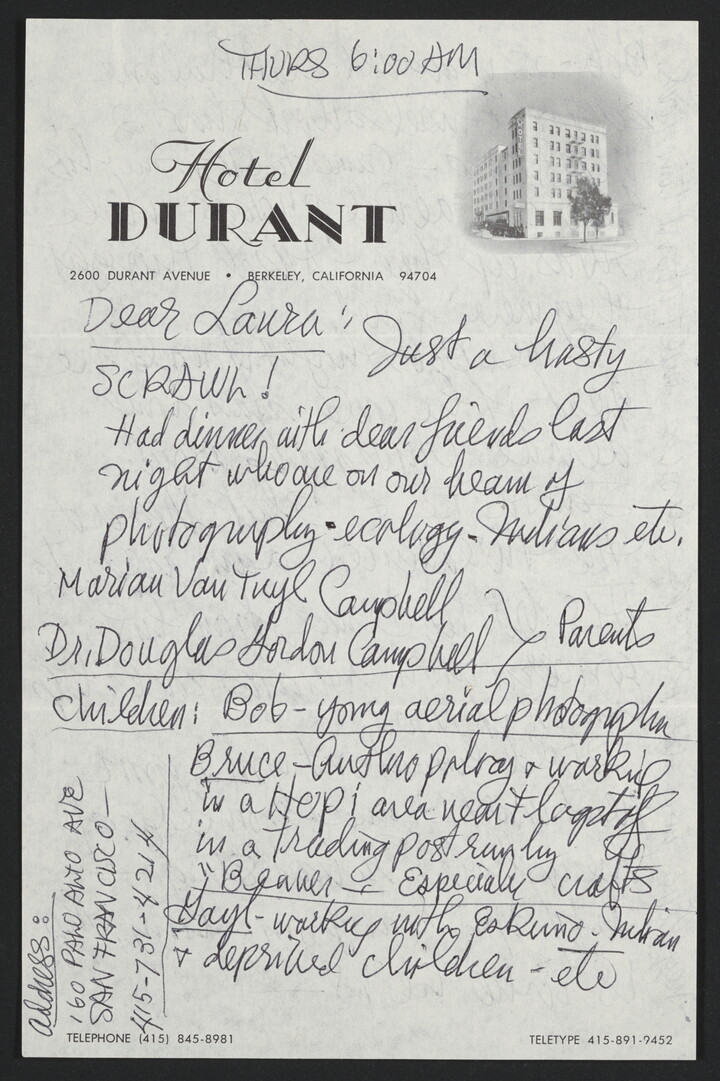 THURS 6:00 AM
Hotel
DURANT
HOTEL
2600 DURANT AVENUE • BERKELEY, CALIFORNIA 94704
Dear Laura: Just a hasty
SCRAWL!
Had dinner with dear friends last
night who are on our beam of
photography-ecology-Indians etc.
Marian Van Tuyl Campbell
Dr. Douglas Gordon Campbell } Parents
Children: Bob - young aerial photographer
Bruce - Anthropology & working
in a Hopi area near Flagstaff
in a trading post run by
"Beaver - Especially crafts
Gayl - working with Eskimo-Indian
& deprived children - etc
Address:
160 PALO ALTO AVE
SAN FRANCISCO -
415-731-4214
TELEPHONE (415) 845-8981
TELETYPE 415-891-9452